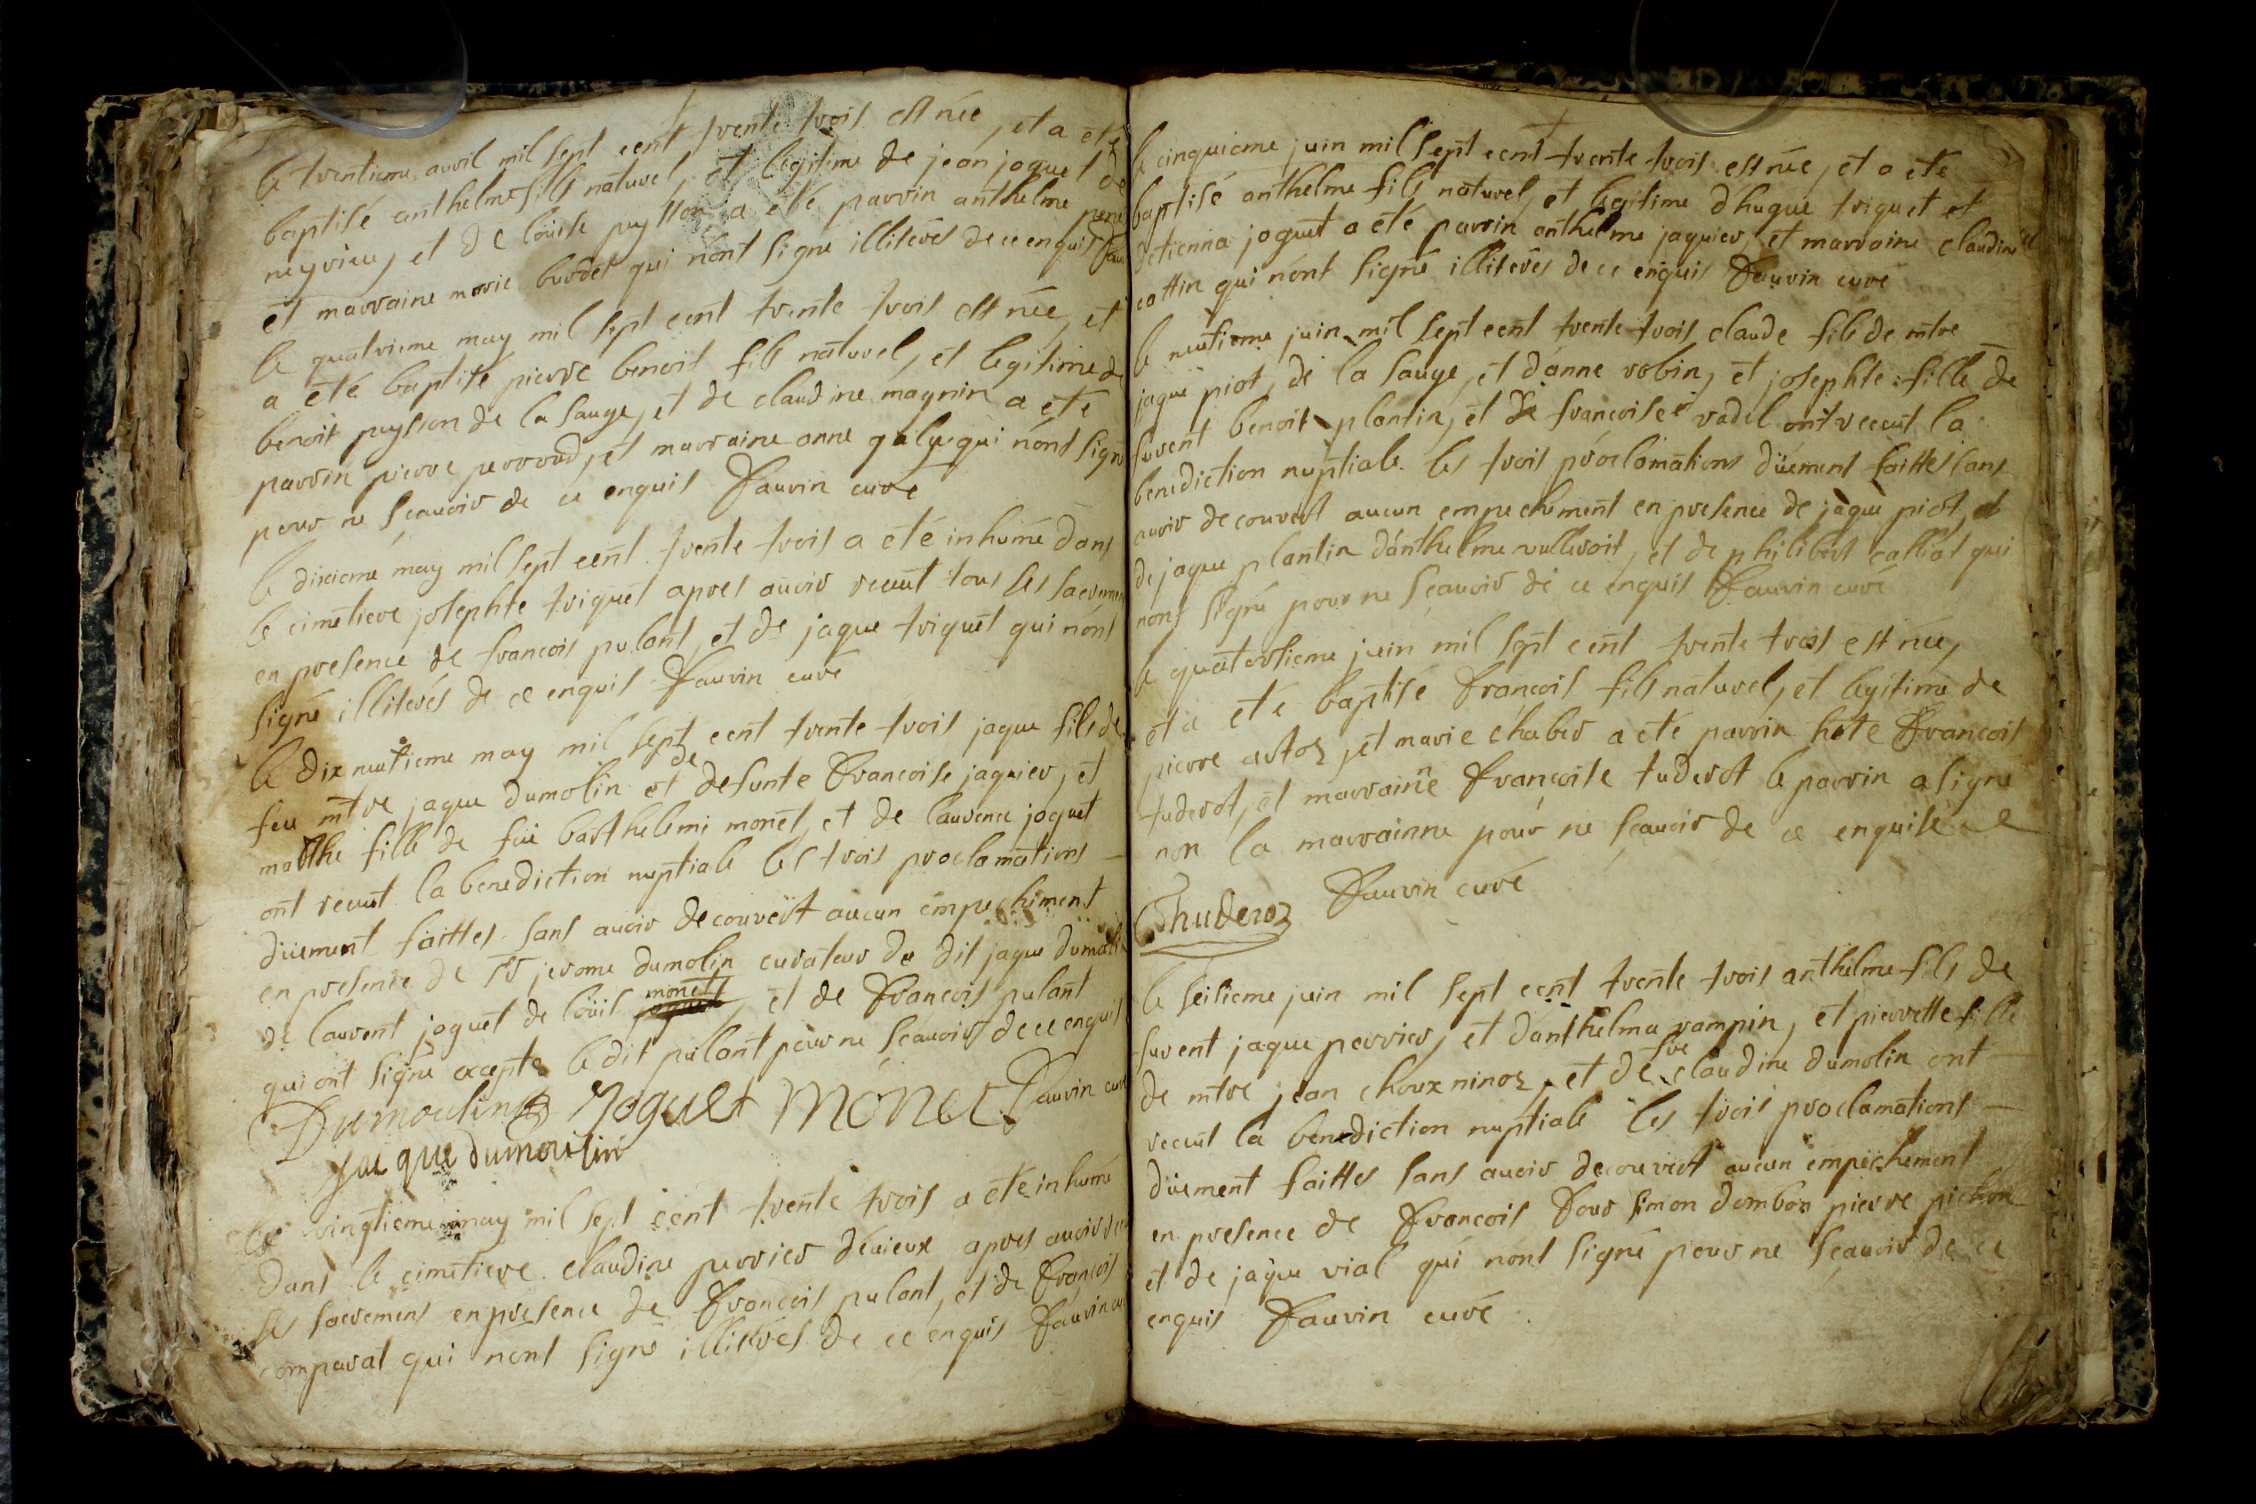 le trentieme avril mil sept cent trente trois est née, et a eté
baptisé anthelme fils naturel, et legitime de jean joguet de
neyrieu, et de loüise puysson a eté parrin anthelme
et marraine marie burdet qui nont signé illiterés de ce enquis
le quatrieme may mil sept cent trente trois est née, et
a eté baptisé pierre benoit fils naturel, et legitime de
benoit puysson de la sauge, et de claudine magnin a eté
parrin pierre perroud, et marraine anne qui nónt signé
pour ne scavoir de ce enquis Faurin curé
le dixieme may mil sept cent trente trois a eté inhumé dans
le cimetiere josephte triquet apres avoir recuüt tous les sacremen
en presence de francois pulant, et de jaque triquet qui nónt
signé illiterés de ce enquis Faurin curé
le dix neutieme may mil sept cent trente trois jaque fils de
feu mtre jaque dumolin et de defunte Francoise jaquier, et
marthe fille de feü barthelemi monet, et de laurence joguet
ont recuüt la benediction nuptiale les trois proclamations
düement faittes sans avoir decouvert aucun émpechement
en presence de Sr jerome dumolin curateur du dit jaque dumolin
de laurent joguet de loüis monet, et de Francois pulant
qui ont signé excepte le dit pulant pour ne scavoir de ce enquis
Dumoulin Joguet Mónet Faurin curé
jacque dumoulin
le vingtieme may mil sept cent trente trois a eté inhumé
dans le cimetiere claudine perrier déuieux apres avoir
les sacremens en presence de Francois pulant, et de Francois
comparat qui nont signé illiterés de ce enquis Faurin
le cinquieme juin mil sept cent trente trois est née, et a eté
baptisé anthelme fils naturel, et legitime dhugue triquet et
détienna joguet a eté parrin anthelme jaquier, et marraine claudine
cottin qui nónt signé illiterés de ce enquis Faurin curé
le neutieme juin mil sept cent trente trois claude fils de mtre
jaque piot, de la sauge, et dánne robin, et josephte fille de
furent benoit plantin, et de francoise vadel ont recuüt la
benediction nuptiale les trois proclamations düement faittes sans
avoir decouvert aucun empechement en presence de jaque piot, et
de jaque plantin dánthelme vulleroit, et de philibert calliat qui
nont signé pour ne scavoir de ce enquis Faurin curé
le quatorsieme juin mil sept cent trente trois est née,
et a eté baptisé Francois fils naturel, et legitime de
pierre artoz, et marie chaber a eté parrin hote Francois
tuderot, et marrainne Francoise tuderot le parrin a signé
non la marrainne pour ne scavoir de ce enquisé
Thuderoz Faurin curé
le seisieme juin mil sept cent trente trois anthelme fils de
furent jaque perrier, et dánthelma rampin, et pierrette fille
de mtre jean choux ninoz, et de fue claudine dumolin ont
recuüt la benediction nuptiale les trois proclamations
düement faittes sans avoir decouvert aucun empechement
en presence de Francois Four simon dombon pierre pichon
et de jaque vial qui nónt signé pour ne scavoir de ce
enquis Faurin curé